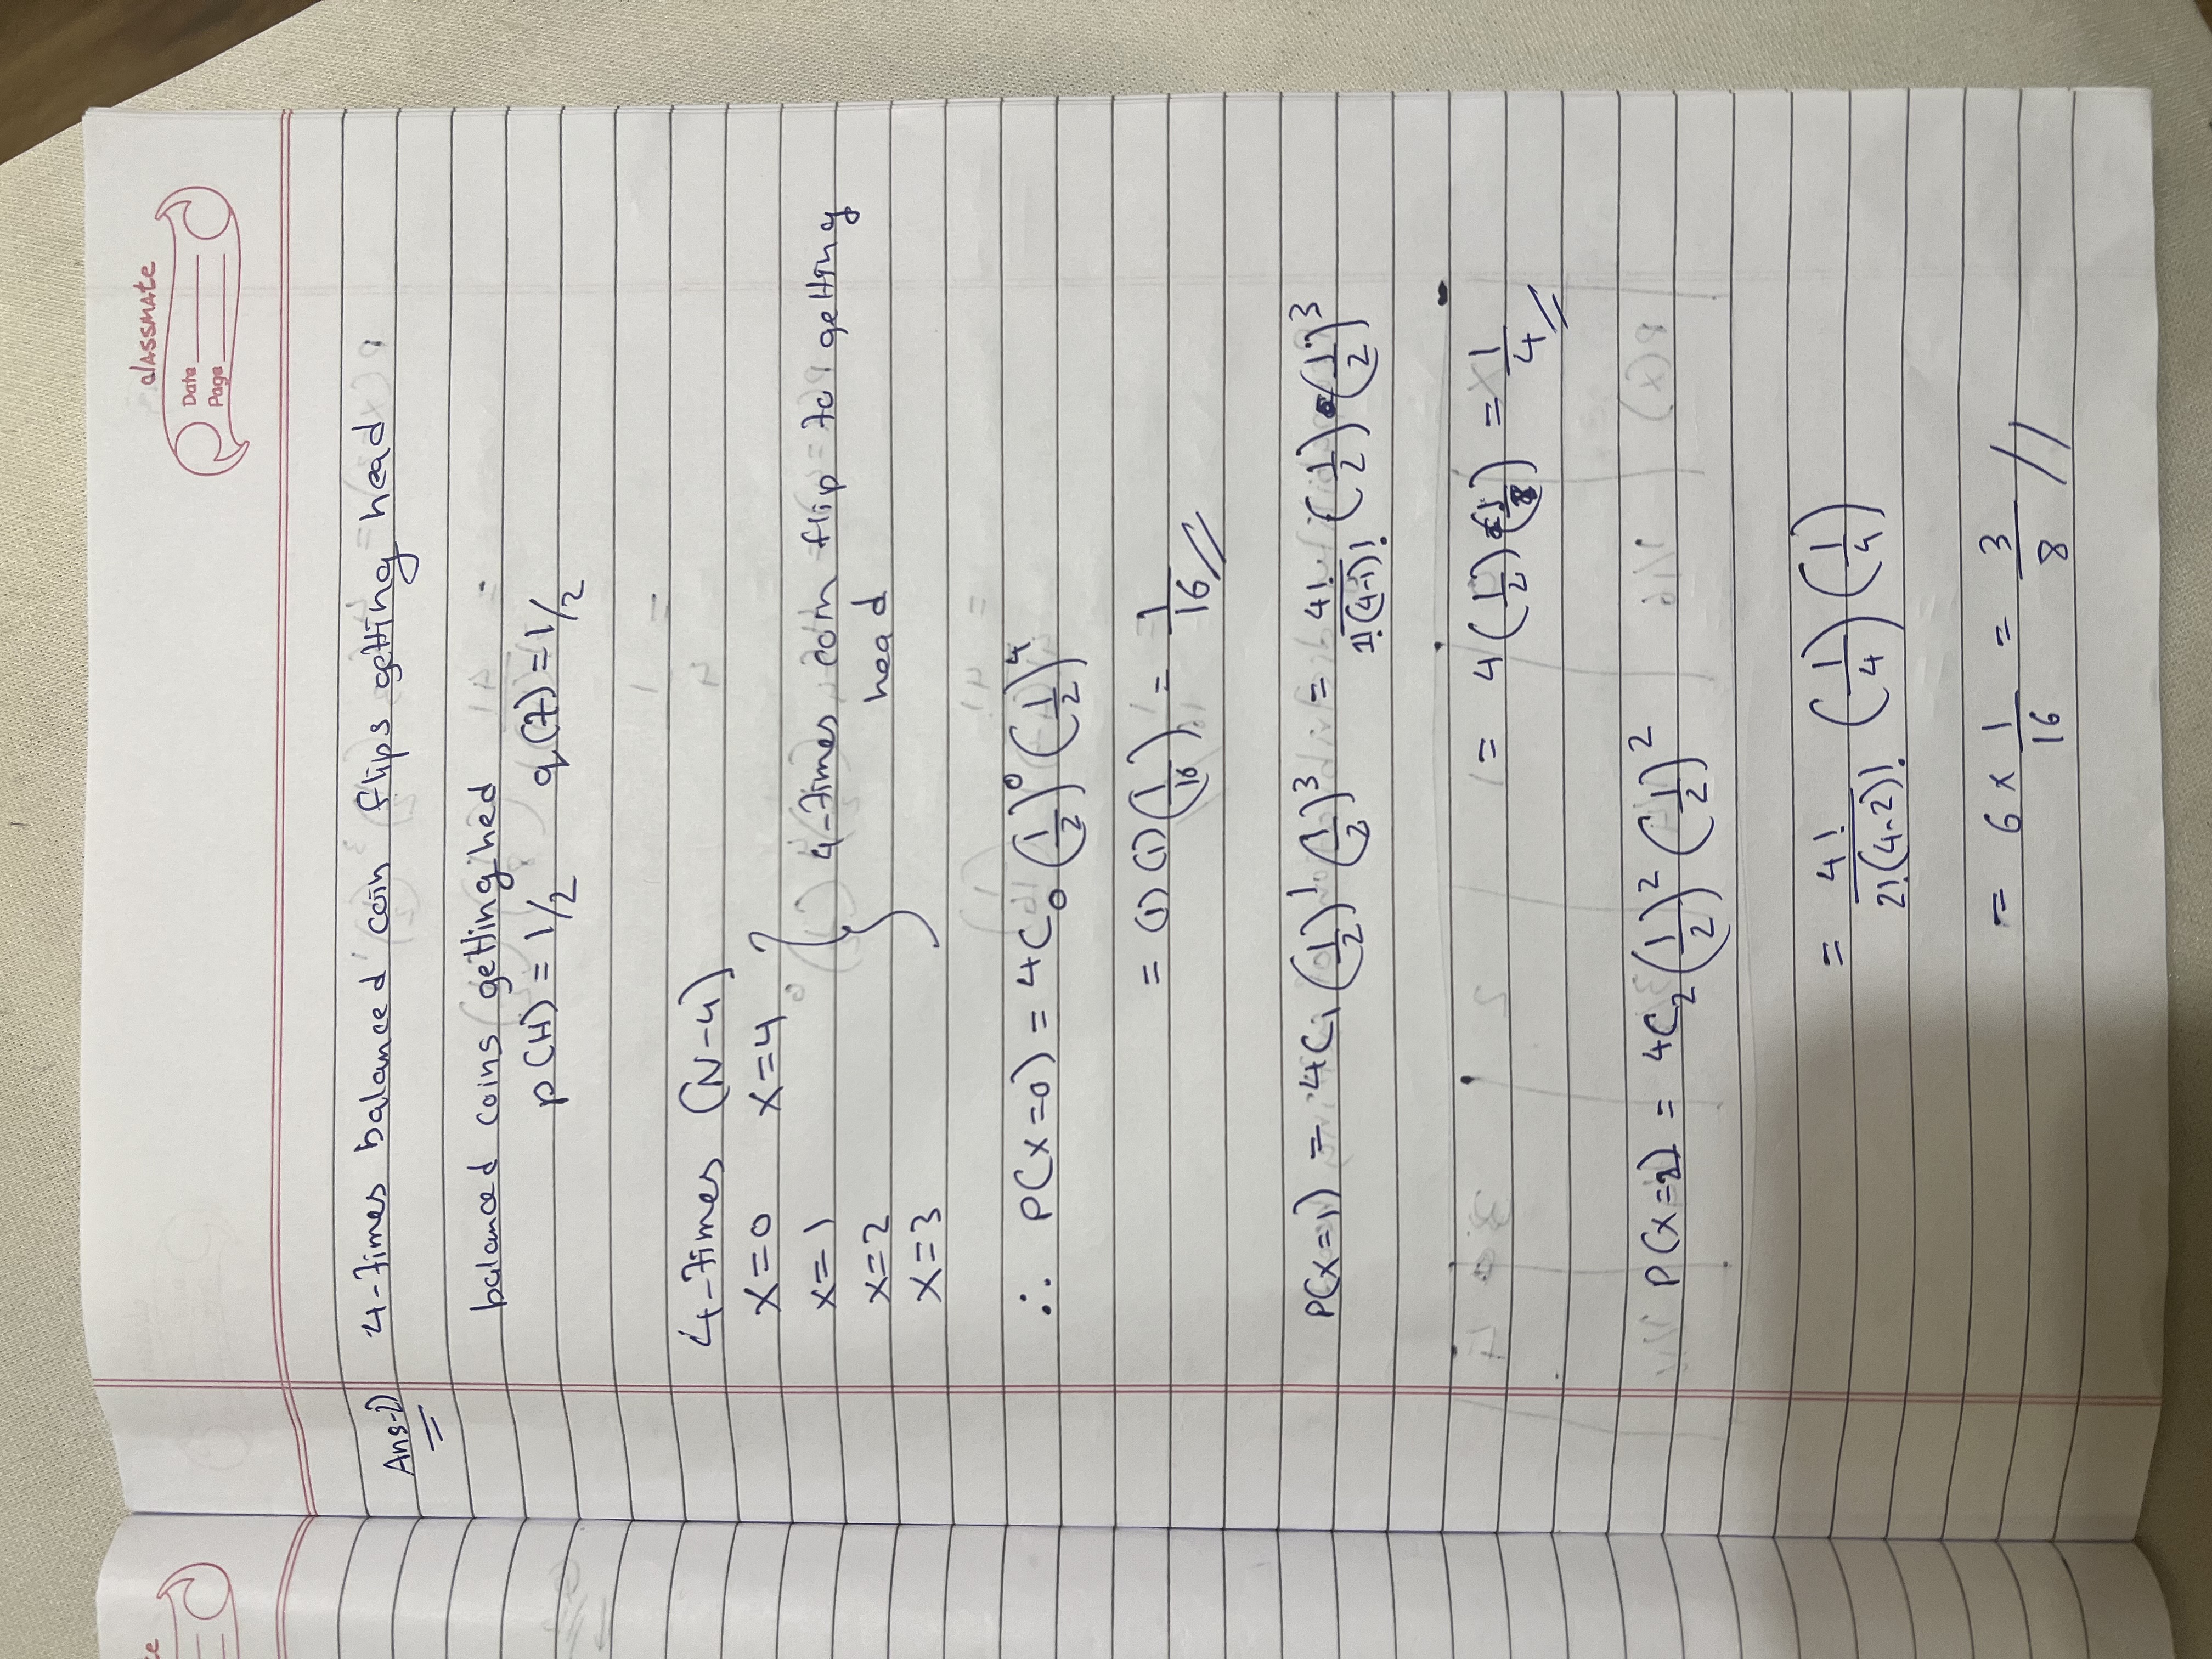 classmate
Date
Page
Ans-2) 4-times balanced coin flips getting head
balanced coins getting hed
p(H) = 1/2 q(T) = 1/2
4-times (N-4)
x=0 x=4
x=1
4-times coin flip to getting
x=2
head
x=3
∴ P(x=0) = 4C₀ (1/2)⁰ (1/2)⁴
= (1) (1) (1/16) = 1/16 //
P(x=1) = 4C₁ (1/2)¹ (1/2)³ = 4!/1!(4-1)! (1/2) (1/2)³
= 4 (1/2) (1/8) = 1/4 //
P(x=2) = 4C₂ (1/2)² (1/2)²
= 4!/2!(4-2)! (1/4) (1/4)
= 6 x 1/16 = 3/8 //